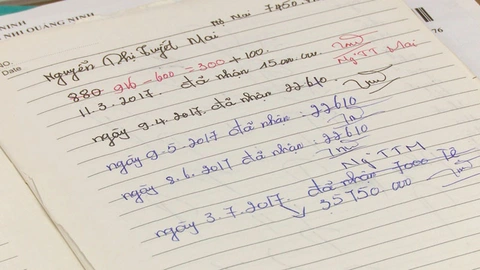 NHI QUẢNG NINH
NO.
Date
Mai 7450.
Nguyễn Thị Tuyết Mai
880 916 - 600 = 300 + 100.
11.3.2017. đã nhận 15.000.000
Ng TT Mai
ngày 9.4.2017. đã nhận 22.610.
ngày 9.5.2017 đã nhận: 22610
ngày 8.6.2017 đã nhận: 22610
Ng TTM
ngày 3.7.2017. đã nhận 7000 Tệ
35750.000
76